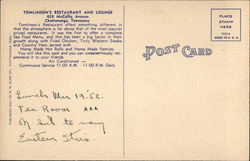 TOMLINSON'S RESTAURANT AND LOUNGE
628 McCallie Avenue
Chattanooga, Tennessee
Tomlinson's Restaurant offers something different in
that the atmosphere is far above that of the most popular
priced restaurants. It was the first to offer a complete
Sea Food Menu, and this has been a big factor in their
growth along with Fried Chicken, Truly Western Steaks
and Country Ham served with
Home Made Hot Rolls and Home Made Pastries.
You will like this spot and you can conscientiously recommend it to your friends.
Air Conditioned
Continuous Service 11:00 A.M. - 11:00 P.M. Daily
POST CARD
PLACE
STAMP
HERE
Lunch Mar 19'52.
Tea Room
to many
Eastern Stars